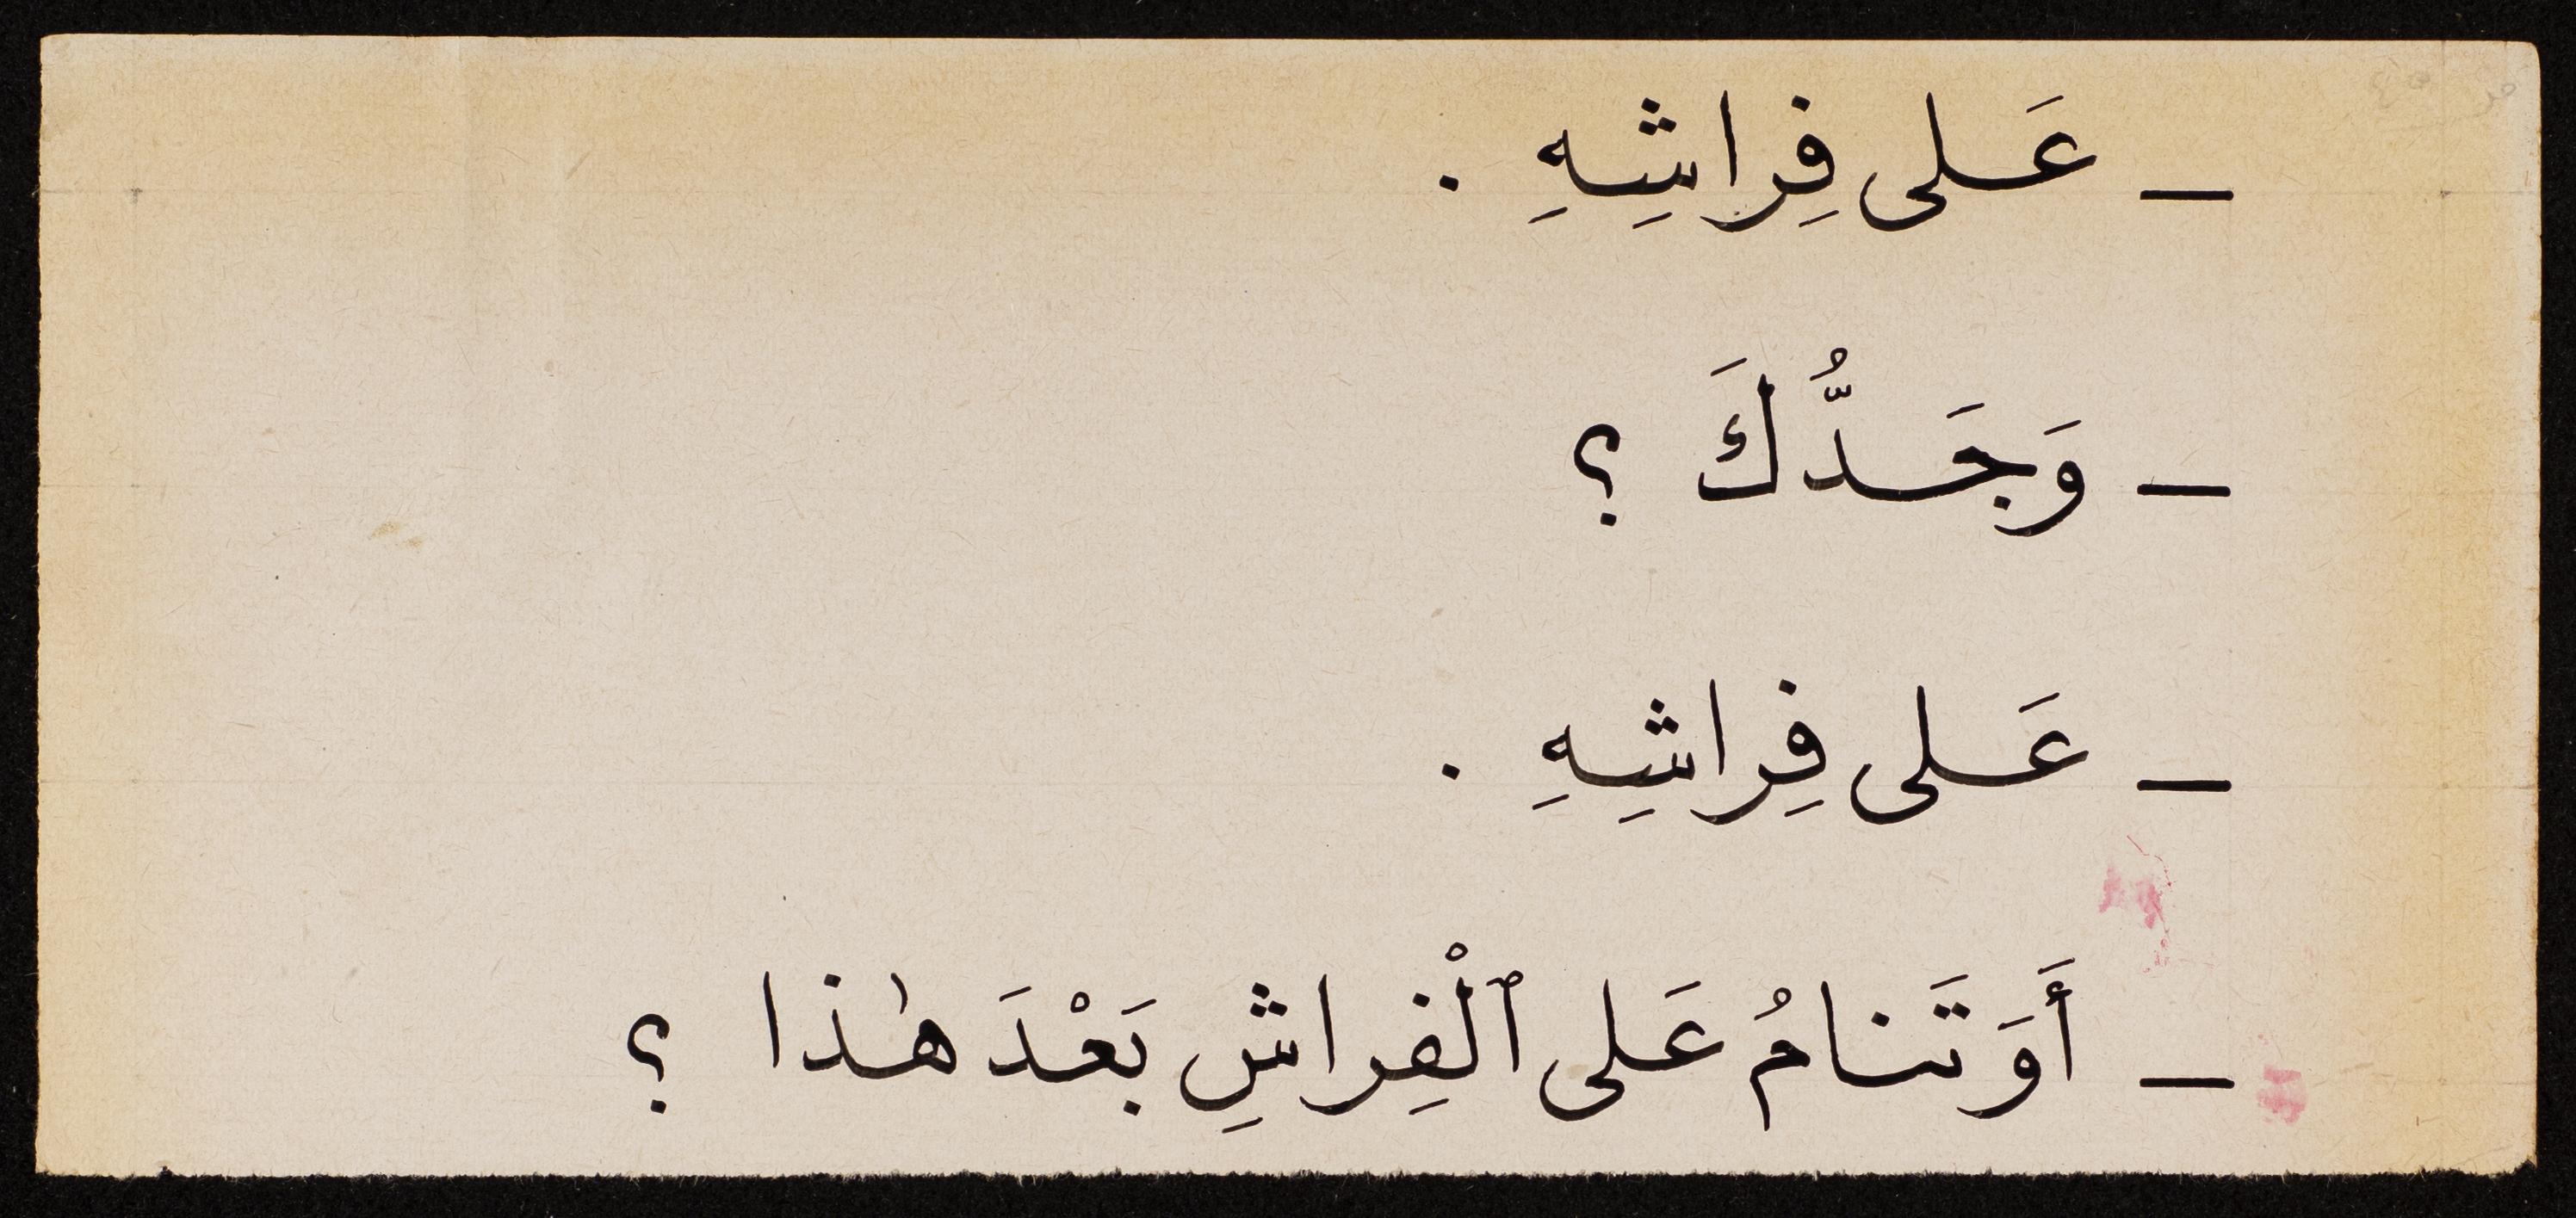 – عَلى فِراشِهِ .
– وَجَدُّكَ ؟
– عَلى فِراشِهِ .
– أَوَتَنامُ عَلى ٱلْفِراشِ بَعْدَ هٰذا ؟